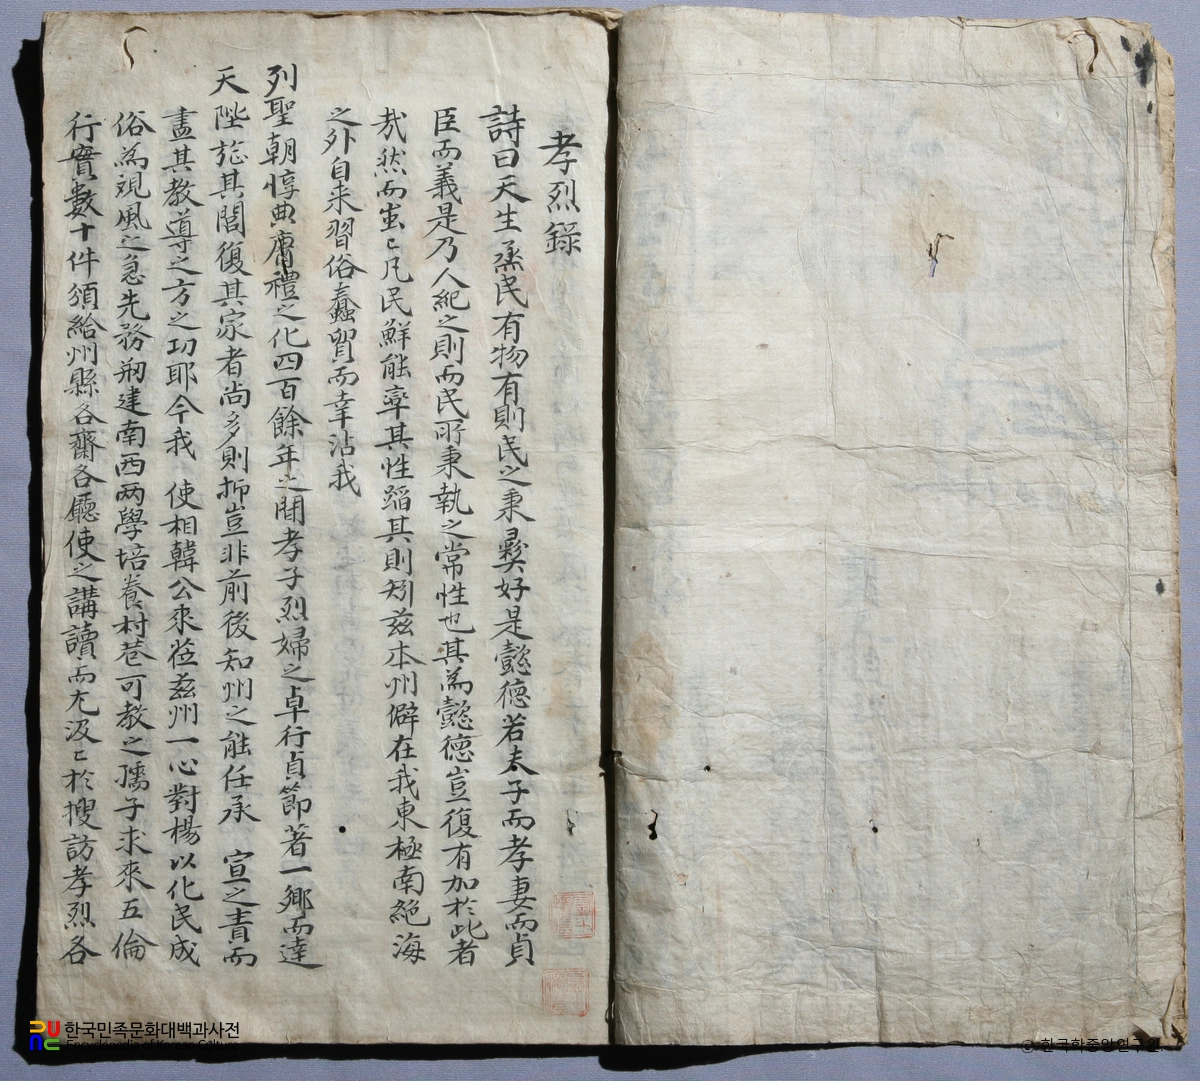 孝烈錄
詩曰天生烝民有物有則民之秉彛好是懿德若夫子而孝妻而貞
臣而義是乃人紀之則而民所秉執之常性也其為懿德豈復有加於此者
㢤然而蚩〻凡民鮮能率其性蹈其則矧玆本州僻在我東極南絶海
之外自来習俗蠢貿而幸沾我
列聖朝惇典庸禮之化四百餘年之間孝子烈婦之卓行貞節著一鄉而達
天陛旌其閭復其家者尚多則抑豈非前後知州之能任承 宣之責而
盡其教導之方之功耶今我 使相韓公來莅玆州一心對揚以化民成
俗為覌風之急先務刱建南西两學培養村巷可教之孺子求來五倫
行實數十件頒給州縣各齋各廳使之講讀而尤汲〻於搜訪孝烈各
한국민족문화대백과사전
Encyclopedia of Korean Culture
ⓒ 한국학중앙연구원